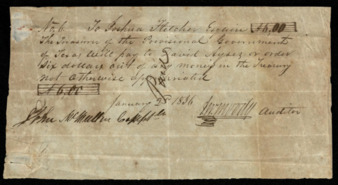 No 6. To Joshua Fletcher $6.00
The Treasurer of the Provisional Government
of Texas Will pay to David or order
Six dollars out of any money in the Treasury
not otherwise appropriated
$6.00
Paid
January 28 1836
John McMullen
Auditor